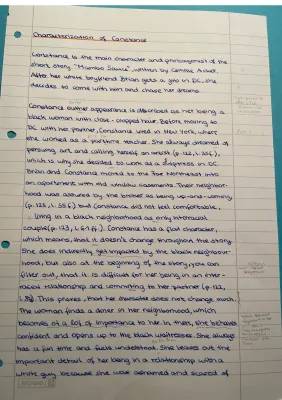 Characterization of Constance
Constance is the main character and protagonist of the
short story "Mambo Sauce", written by Camille Acker.
After her white boyfriend Brian gets a job in DC, she
decides to come with him and chase her dreams.
Constance outher appearance is described as her being a
black woman with close-chopped hair. Before moving to
DC with her partner, Constance lived in New York, where
she worked as a part time teacher. She always dreamed of
persuing art and calling herself an artist (p. 122, l. 35 f.),
which is why she decided to work as a in DC.
Brian and Constance moved to the Far Northeast into
an apartement with old window casements. Their neighbor-
hood was assured by the broker as being up-and-coming
(p. 123, l. 55 f.) but Constance did not feel comfortable,
living in a black neighborhood as only interracial
couple (p. 123, l. 61 ff.). Constance has a flat character,
which means, that it doesn't change throughout the story.
She does indirectly get impacted by the black neighbour-
hood, but also at the beginning of the story, you can
filter out, that it is difficult for her being in an inter-
racial relationship and commiting to her partner (p. 122,
). This proves, that her character does not change much.
The woman finds a diner in her neighborhood, which
becomes of a lot of importance to her. In there, she behaves
confident and opens up to the black waitresses. She always
has a fun time and feels understood. She leaves out the
important detail of her being in a relationship with a
white guy because she was ashamed and scared of